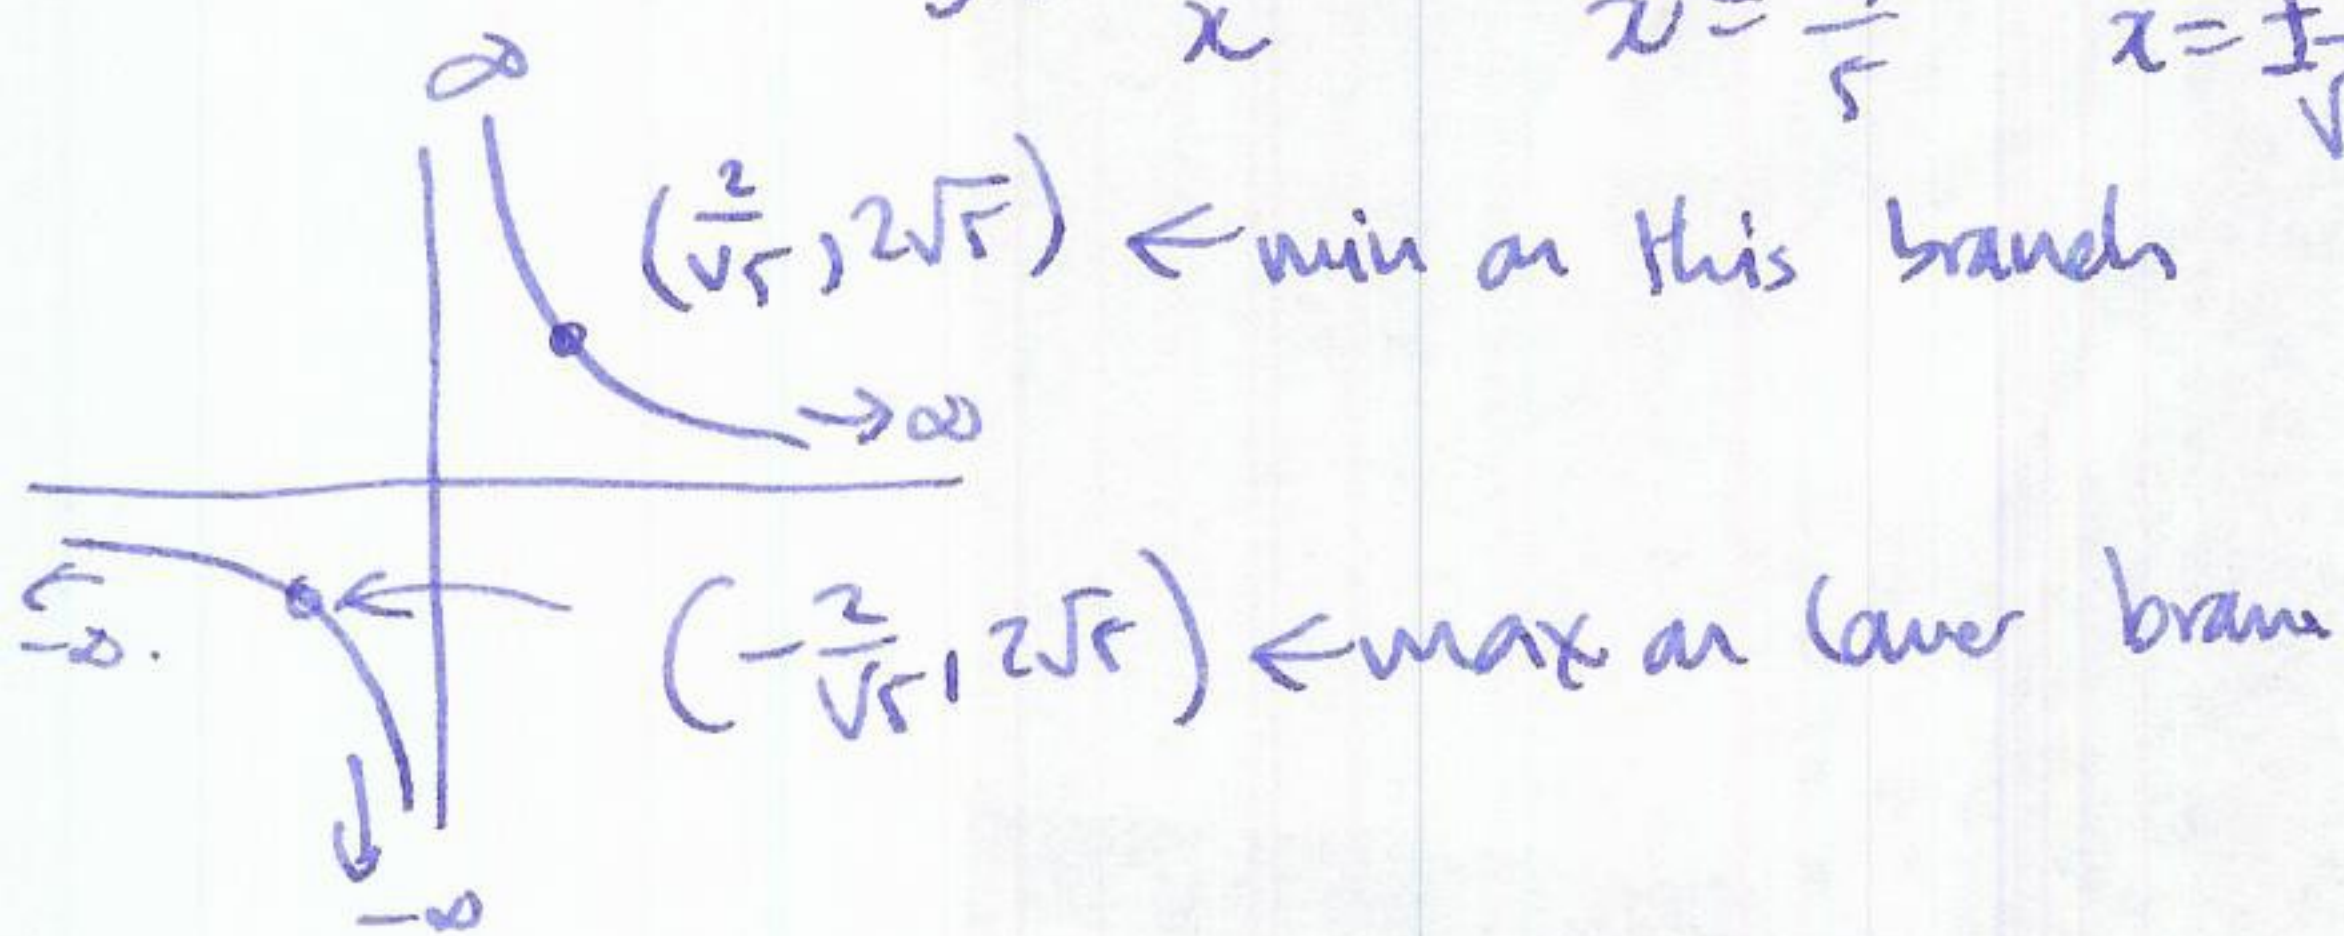 x x² = 4/5 x = ±
∞
(2/√5, 2√5) ← min on this branch
→ ∞
← -∞.
(-2/√5, 2√5) ← max on lower bran
↓
-∞